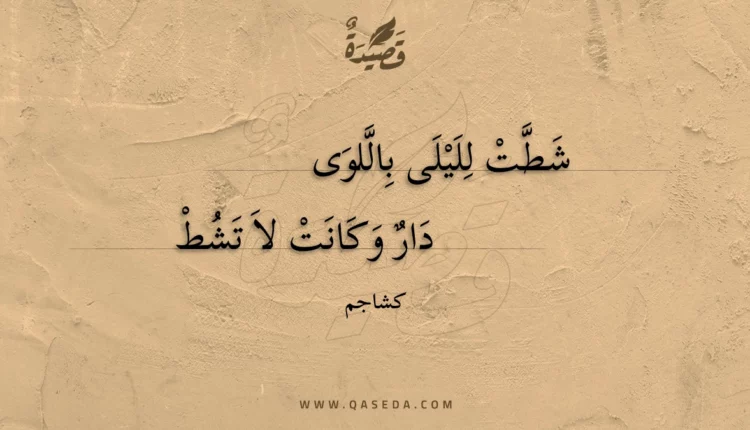 قَصِيدَةٌ
شَطَّتْ لِلَيْلَى بِالَّلوَى
دَارٌ وَكَانَتْ لاَ تَشُطْ
كشاجم
WWW.QASEDA.COM